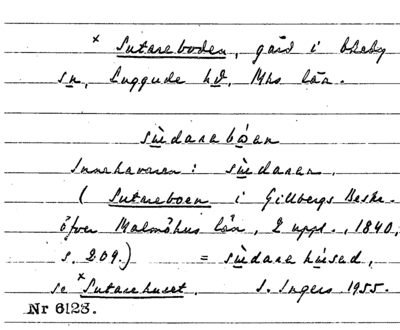 × Sutareboden, gård i
sn, Luggude hd, Mhs län.
sùdarebóan
Innehavaren: sùdaren.
(Sutareboen i Gillbergs Beskr.
öfver Malmöhus län, 2 uppl., 1840,
s. 209.) = sùdarehúsad,
se ×Sutarehuset. I. Ingers 1955.
Nr 6123.